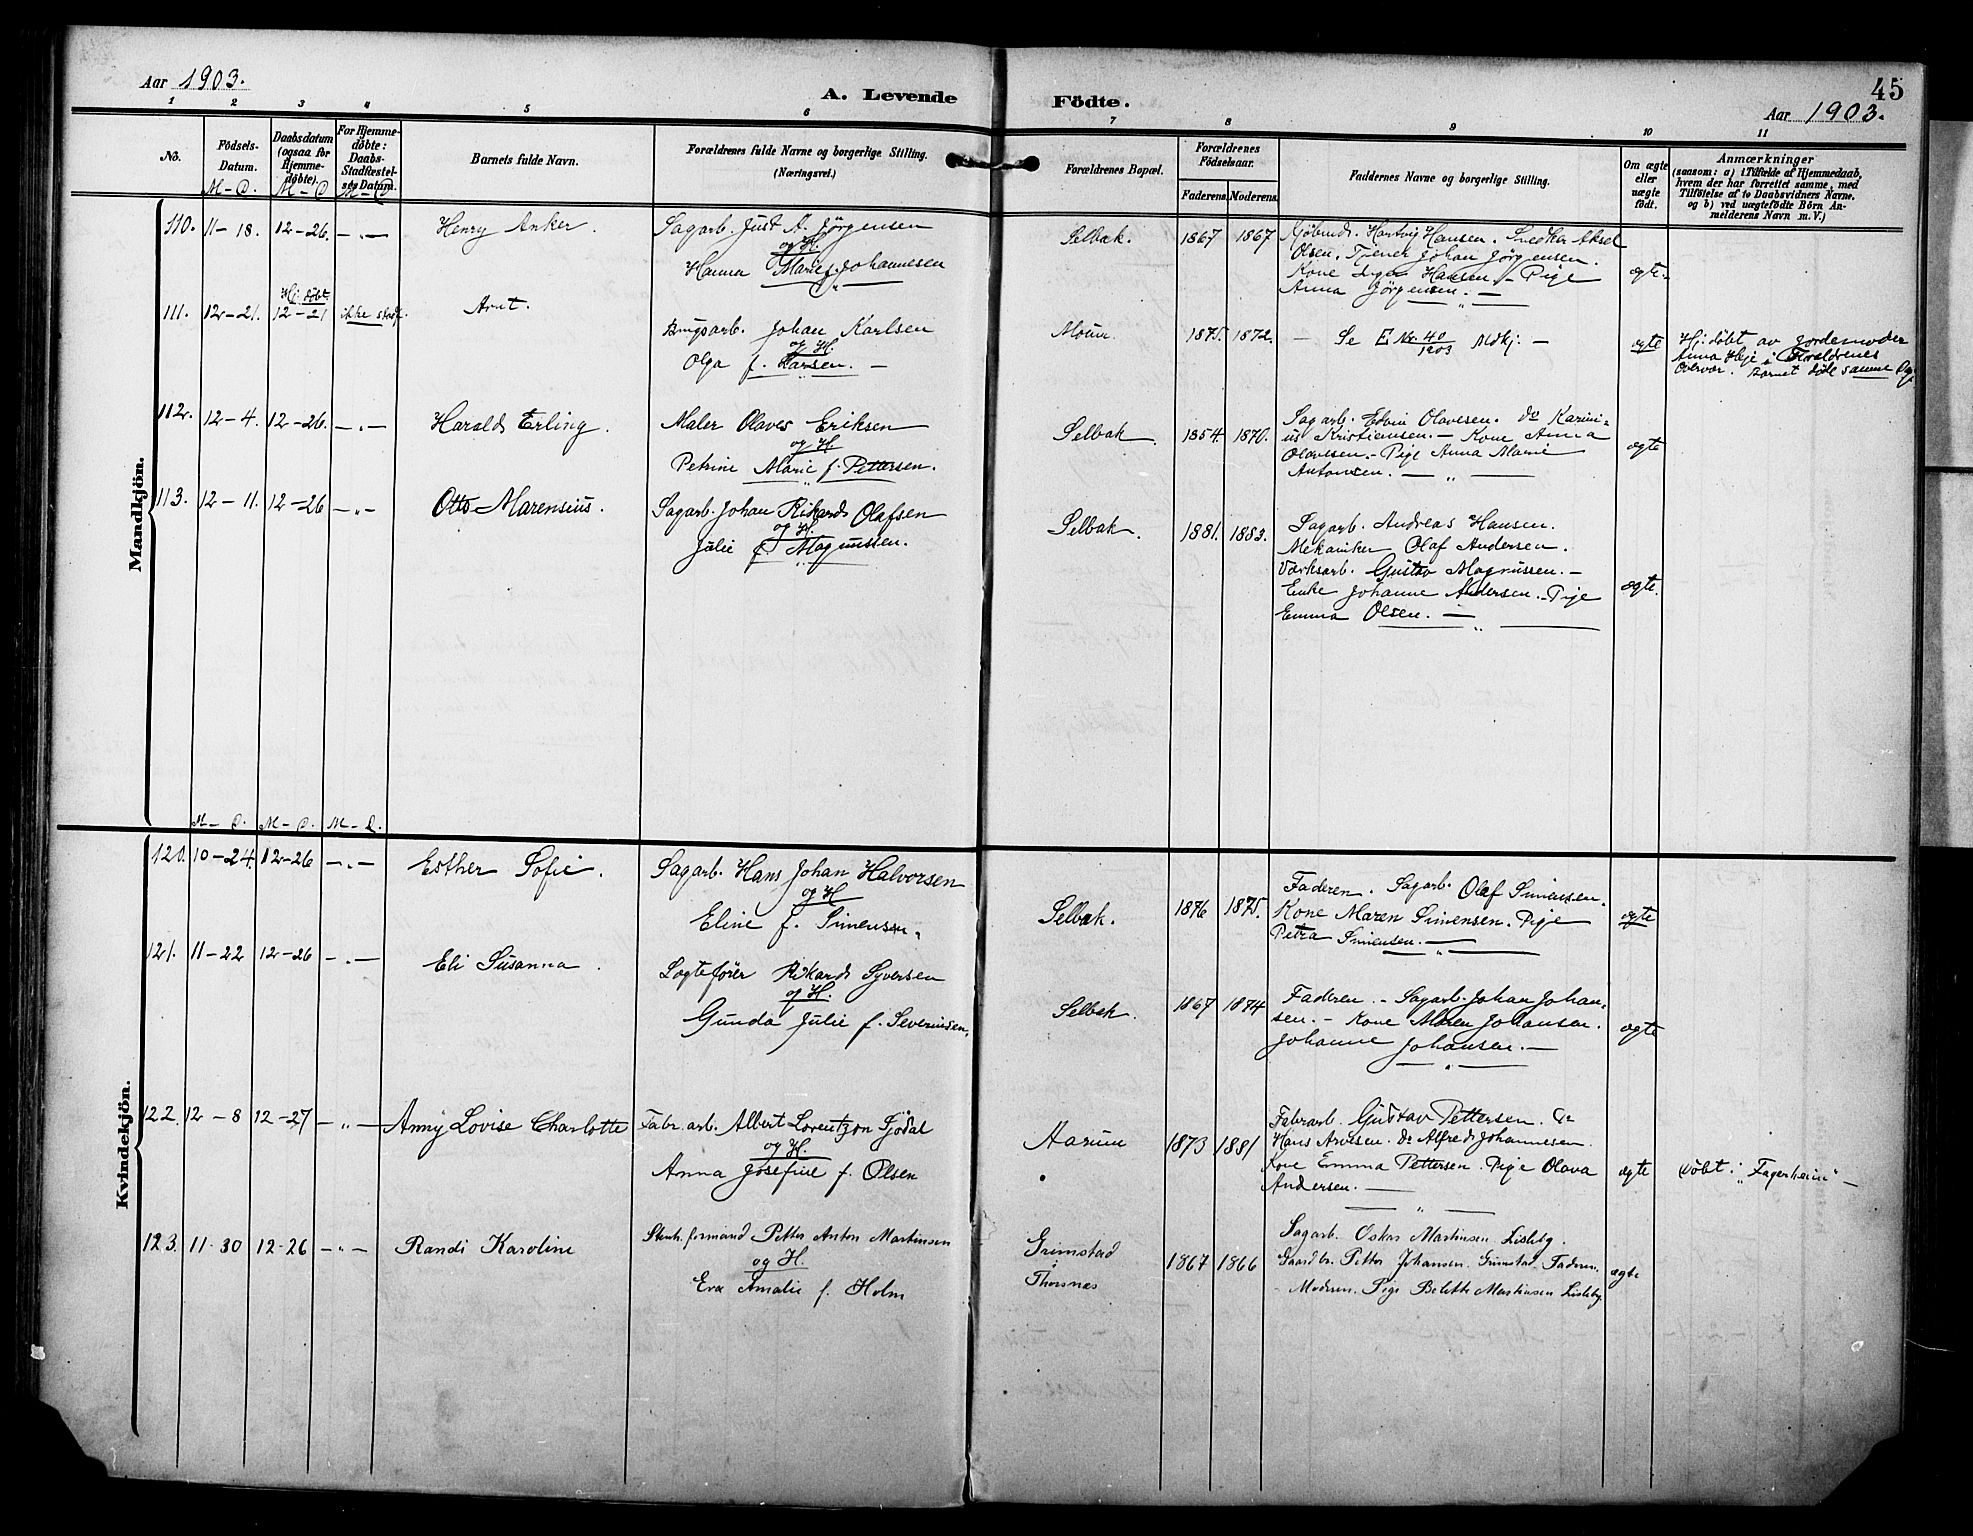 Aar 1903.
A. Levende
Födte.
45
Aar 1903.
1 2 3 4 5 6 7 8 9 10 11
No.
Födsels-
Datum.
M – D.
Daabsdatum
(ogsaa for
Hjemme-
döbte).
M – D
For Hjemme-
döbte:
Daabs-
Stadfæstel-
ses Datum.
M – D
Barnets fulde Navn.
Forældrenes fulde Navne og borgerlige Stilling.
(Næringsvei.)
Forældrenes Bopæl.
Forældrenes
Födselsaar.
Faderens. Moderens.
Faddernes Navne og borgerlige Stilling.
Om ægte
eller
uægte
födt.
Anmærkninger
(saasom: a) i Tilfælde af Hjemmedaab,
hvem der har forrettet samme, med
Tilföielse af to Daabsvidners Navne,
og b) ved uægtefödte Börn An-
melderens Navn m. V.)
Mandkjön.
110. 11–18. 12–26. –„– Henry Anker.
Sagarb. Just A. Jørgensen
og H.
Hanna Marie f. Johannesen
Selbak. 1867 1867
Hartvig Hansen. Snedker Aksel
Olsen. Tjener Johan Jørgensen.
Kone Inga Hansen. – Pige
Anna Jørgensen. –
ægte.
111. 12–21. Hj. døbt. 12–21 ikke stadf. Arnt.
Brugsarb. Johan Karlsen
og H.
Olga f. Larsen. –
Moum 1875. 1872. – Se E Nr. 40/1903 Mdkj. – ægte
Hj. døbt av jordemoder
Anna Heje i Forældrenes
Overvær. Barnet døde samme Dag.
112. 12–4. 12–26. –„– Harald Erling.
Maler Olaves Eriksen
og H
Petrine Marie f. Pettersen.
Selbak. 1854 1870.
Sagarb. Edvin Olavesen. do Karini-
us Kristiansen. – Kone Anna
Olavesen. – Pige Anna Marie
Antonsen. –
ægte
113. 12–11. 12–26 –„– Otto Marensius.
Sagarb. Johan Rikard Olafsen
og H.
Julie f. Magnussen.
Selbak. 1881. 1883.
Sagarb. Andreas Hansen.
Mekaniker Olaf Andersen.
Værksarb. Gustav Magnussen. –
Enke Johanne Andersen. – Pige
Emma Olsen. –
ægte.
M – D. M – D. M – D.
Kvindekjön.
120. 10–24. 12–26 –„– Esther Sofie.
Sagarb. Hans Johan Halvorsen
og H
Eline f. Simensen.
Selbak. 1876 1875.
Faderen. Sagarb. Olaf Simensen.
Kone Maren Simensen. Pige
Petra Simensen. –
ægte
121. 11–22 12–26 –„– Eli Susanna.
Logtefører Rikard Syversen
og H.
Gunda Julie f. Severinsen.
Selbak. 1867 1874
Faderen. – Sagarb. Johan Johan-
sen. – Kone Maren Johansen.
Johanne Johansen. –
ægte
122. 12–8 12–27 –„– Anny Lovise Charlotte
Fabr. arb. Albert Lorentzon Sjødal
og H.
Anna Josefine f. Olsen
Aarum 1873 1881
Fabrarb. Gustav Pettersen. do
Hans Arvesen. do Alfred Johannesen.
Kone Emma Pettersen. Pige Olava
Andersen. –
ægte Døbt i „Fagerheim“ –
123. 11–30 12–26 –„– Randi Karoline
Stenh. formand Petter Anton Martinsen
og H.
Eva Amalie f. Holm
Grimstad
i
Thorsnæs
1867 1866
Sagarb. Oskar Martinsen Lisleby.
Gaardbr. Petter Johansen. Grimstad. Faderen.
– Moderen. Pige Bolette Martinsen Lisleby
ægte